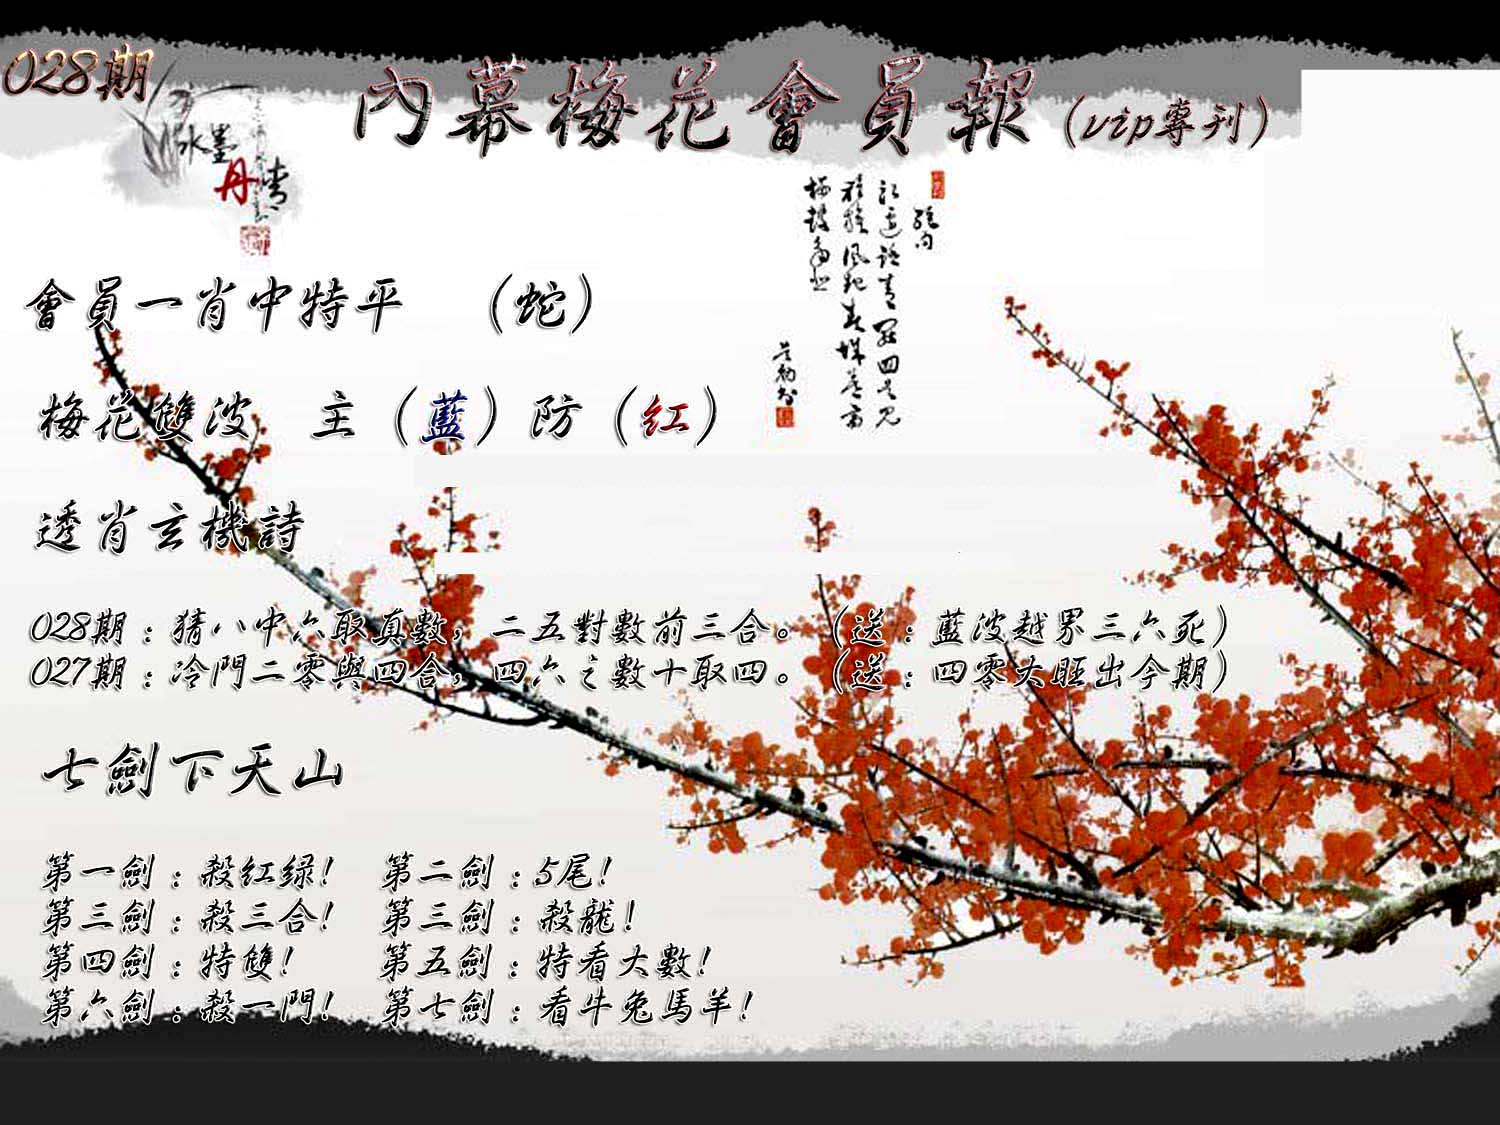 028期
內幕梅花會員報（vip專刊）
水墨
丹青
會員一肖中特平 （蛇）
梅花雙波 主（藍）防（紅）
透肖玄機詩
028期：猜八中六取真數，二五對數前三合。（送：藍波越界三六死）
027期：冷門二零與四合，四六之數十取四。（送：四零大旺出今期）
七劍下天山
第一劍：殺紅绿！ 第二劍：5尾！
第三劍：殺三合！ 第三劍：殺龍！
第四劍：特雙！ 第五劍：特看大數！
第六劍：殺一門！ 第七劍：看牛兔馬羊！